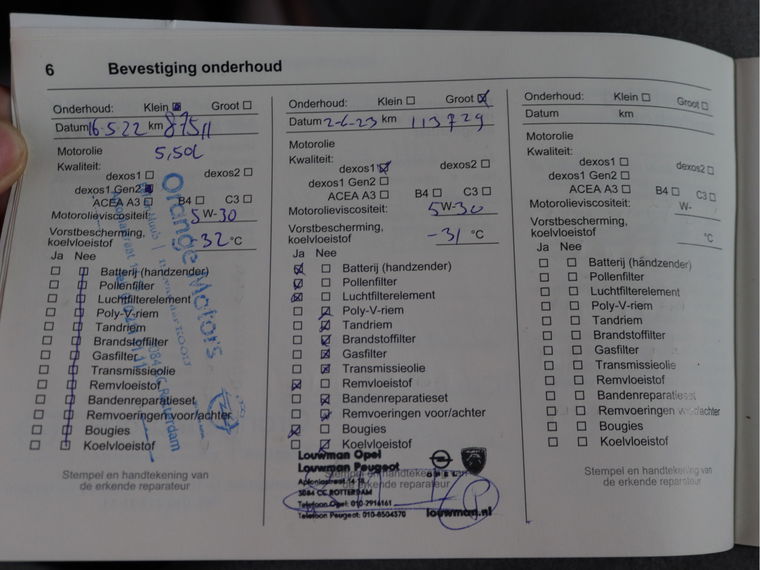 6 Bevestiging onderhoud
Onderhoud: Klein ☒ Groot ☐
Datum 16-5-22 km 87511
Motorolie 5,50L
Kwaliteit:
dexos1 ☐ dexos2 ☐
dexos1 Gen2 ☒
ACEA A3 ☐ B4 ☐ C3 ☐
Motorolieviscositeit: 5W-30
Vorstbescherming,
koelvloeistof -32 °C
Ja Nee
☐ ☐ Batterij (handzender)
☐ ☐ Pollenfilter
☐ ☐ Luchtfilterelement
☐ ☐ Poly-V-riem
☐ ☐ Tandriem
☐ ☐ Brandstoffilter
☐ ☐ Gasfilter
☐ ☐ Transmissieolie
☐ ☐ Remvloeistof
☐ ☐ Bandenreparatieset
☐ ☐ Remvoeringen voor/achter
☐ ☐ Bougies
☐ ☐ Koelvloeistof
Orange Motors
Rotterdam
Stempel en handtekening van
de erkende reparateur
Onderhoud: Klein ☐ Groot ☒
Datum 2-6-23 km 113729
Motorolie
Kwaliteit:
dexos1 ☒ dexos2 ☐
dexos1 Gen2 ☐
ACEA A3 ☐ B4 ☐ C3 ☐
Motorolieviscositeit: 5W-30
Vorstbescherming,
koelvloeistof -31 °C
Ja Nee
☒ ☐ Batterij (handzender)
☒ ☐ Pollenfilter
☒ ☐ Luchtfilterelement
☐ ☒ Poly-V-riem
☐ ☒ Tandriem
☐ ☒ Brandstoffilter
☐ ☒ Gasfilter
☐ ☒ Transmissieolie
☒ ☐ Remvloeistof
☐ ☒ Bandenreparatieset
☐ ☒ Remvoeringen voor/achter
☒ ☐ Bougies
☐ ☒ Koelvloeistof
Louwman Opel
Louwman Peugeot
Stempel en handtekening van
de erkende reparateur
3084 CC ROTTERDAM
Telefoon Opel: 010-2916161
Telefoon Peugeot: 010-8504370
OPEL
louwman.nl
Onderhoud: Klein ☐ Groot ☐
Datum km
Motorolie
Kwaliteit:
dexos1 ☐ dexos2 ☐
dexos1 Gen2 ☐
ACEA A3 ☐ B4 ☐ C3 ☐
Motorolieviscositeit: W-
Vorstbescherming,
koelvloeistof °C
Ja Nee
☐ ☐ Batterij (handzender)
☐ ☐ Pollenfilter
☐ ☐ Luchtfilterelement
☐ ☐ Poly-V-riem
☐ ☐ Tandriem
☐ ☐ Brandstoffilter
☐ ☐ Gasfilter
☐ ☐ Transmissieolie
☐ ☐ Remvloeistof
☐ ☐ Bandenreparatieset
☐ ☐ Remvoeringen voor/achter
☐ ☐ Bougies
☐ ☐ Koelvloeistof
Stempel en handtekening van
de erkende reparateur